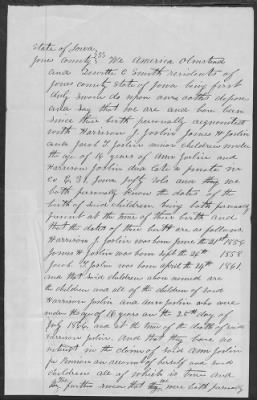 State of Iowa
Jones County } SS We America Olmstead
and Dewitt C Smith residents of
Jones county State of Iowa being first
duly sworn do upon our oaths depose
and say that we are and have been
since their birth personally acquainted
with Harrison J Joslin James H Joslin
and Jacob T Joslin minor children under
the age of 16 years of Ann Joslin and
Harrison Joslin late a private in
Co E 31 Iowa Inft Vols and they
both personally know the dates of the
birth of said children being both personally
present at the time of their birth and
that the dates of their birth are as follows
Harrison J. Joslin was born June the 21st 1856
James H Joslin was born Sept the 26th 1858
Jacob T Joslin was born April the 14th 1861
and that said children above named are
the children and all of the children of said
Harrison Joslin and Ann Joslin who were
under the age of 16 years on the 25th day of
July 1866 and at the time of the death of said
Harrison Joslin. And that they have no
interest in the claim of said Ann Joslin
for Pension on account of herself and said
children all of which is true and
further swear that they were both personally